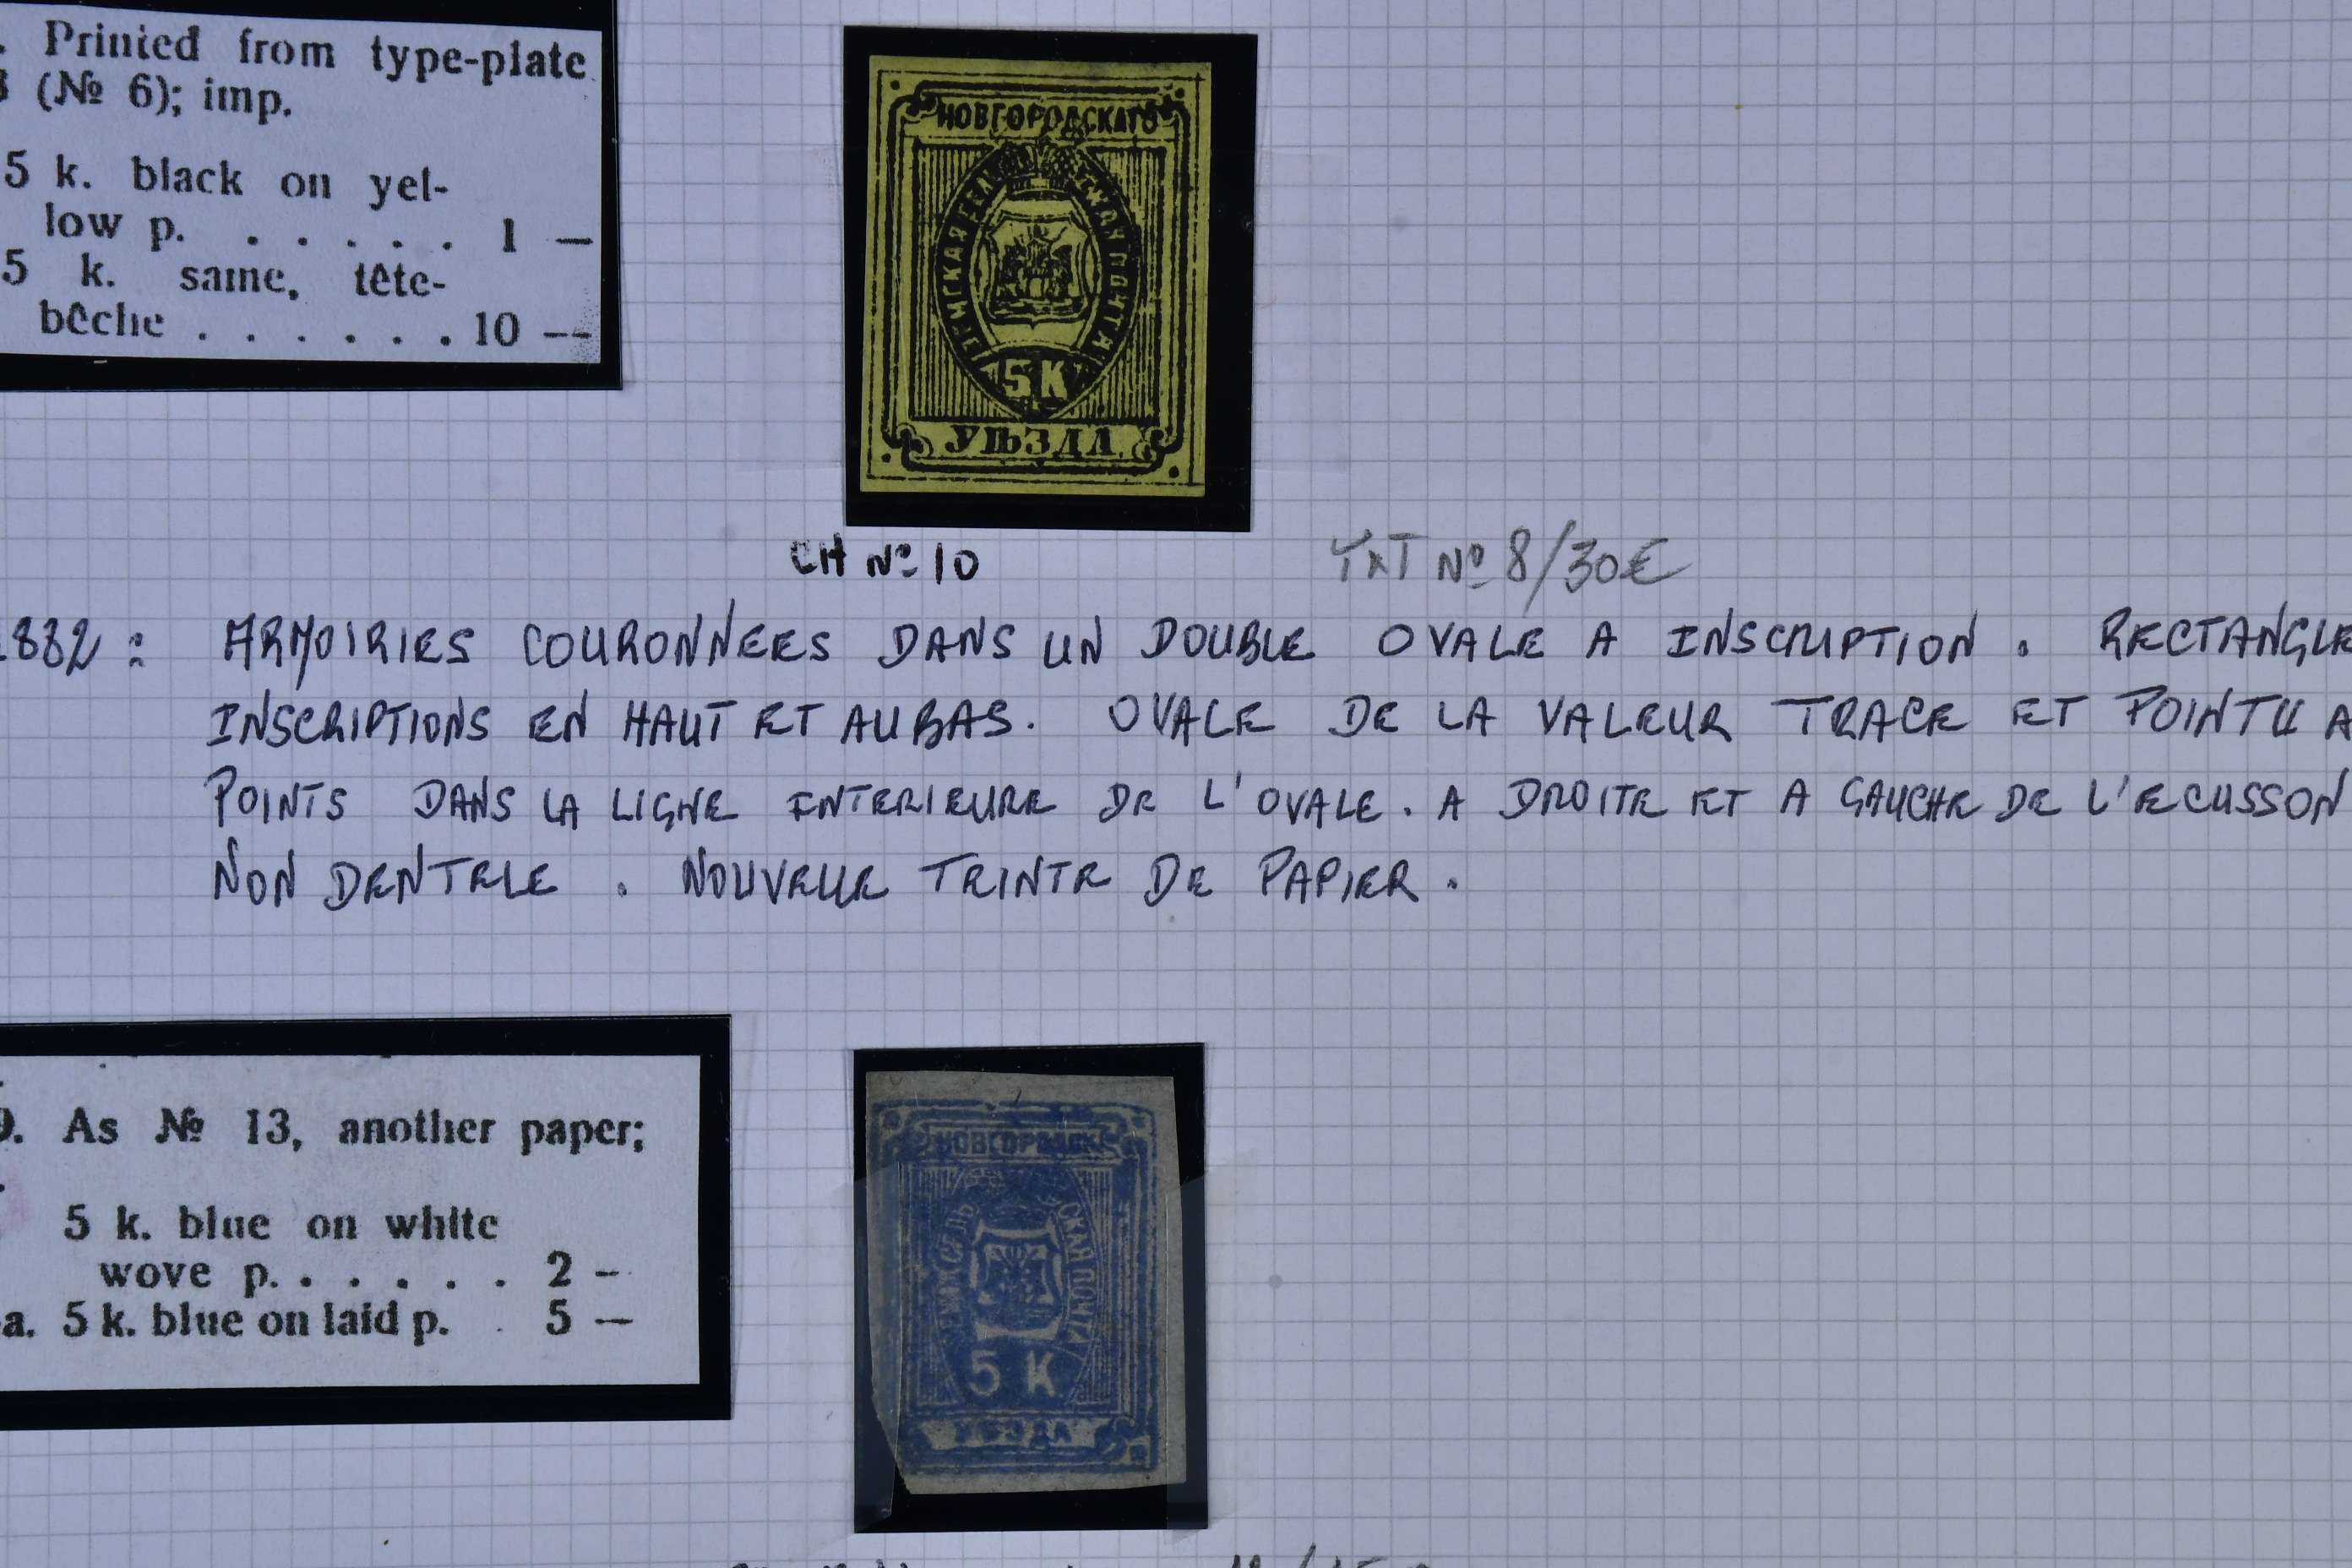 . Printed from type-plate
(№ 6); imp.
5 k. black on yel-
low p. . . . . . 1 —
5 k. same, tête-
bêche . . . . . . 10 —
НОВГОРОДСКАГО
ЗЕМСКАЯ СЕЛЬСКАЯ ПОЧТА
5 К
УѢЗДА
CH Nº 10
TXT Nº 8/30€
1882 : ARMOIRIES COURONNEES DANS UN DOUBLE OVALE A INSCRIPTION . RECTANGLE
INSCRIPTIONS EN HAUT ET AU BAS. OVALE DE LA VALEUR TRACE ET POINTU A
POINTS DANS LA LIGNE INTERIEURE DE L'OVALE . A DROITE ET A GAUCHE DE L'ECUSSON
NON DENTELE . NOUVELLE TEINTE DE PAPIER .
9. As № 13, another paper;
5 k. blue on white
wove p. . . . . . 2 -
a. 5 k. blue on laid p. . 5 —
НОВГОРОДСК
СЕЛЬСКАЯ ПОЧТА
5 К
УѢЗДА